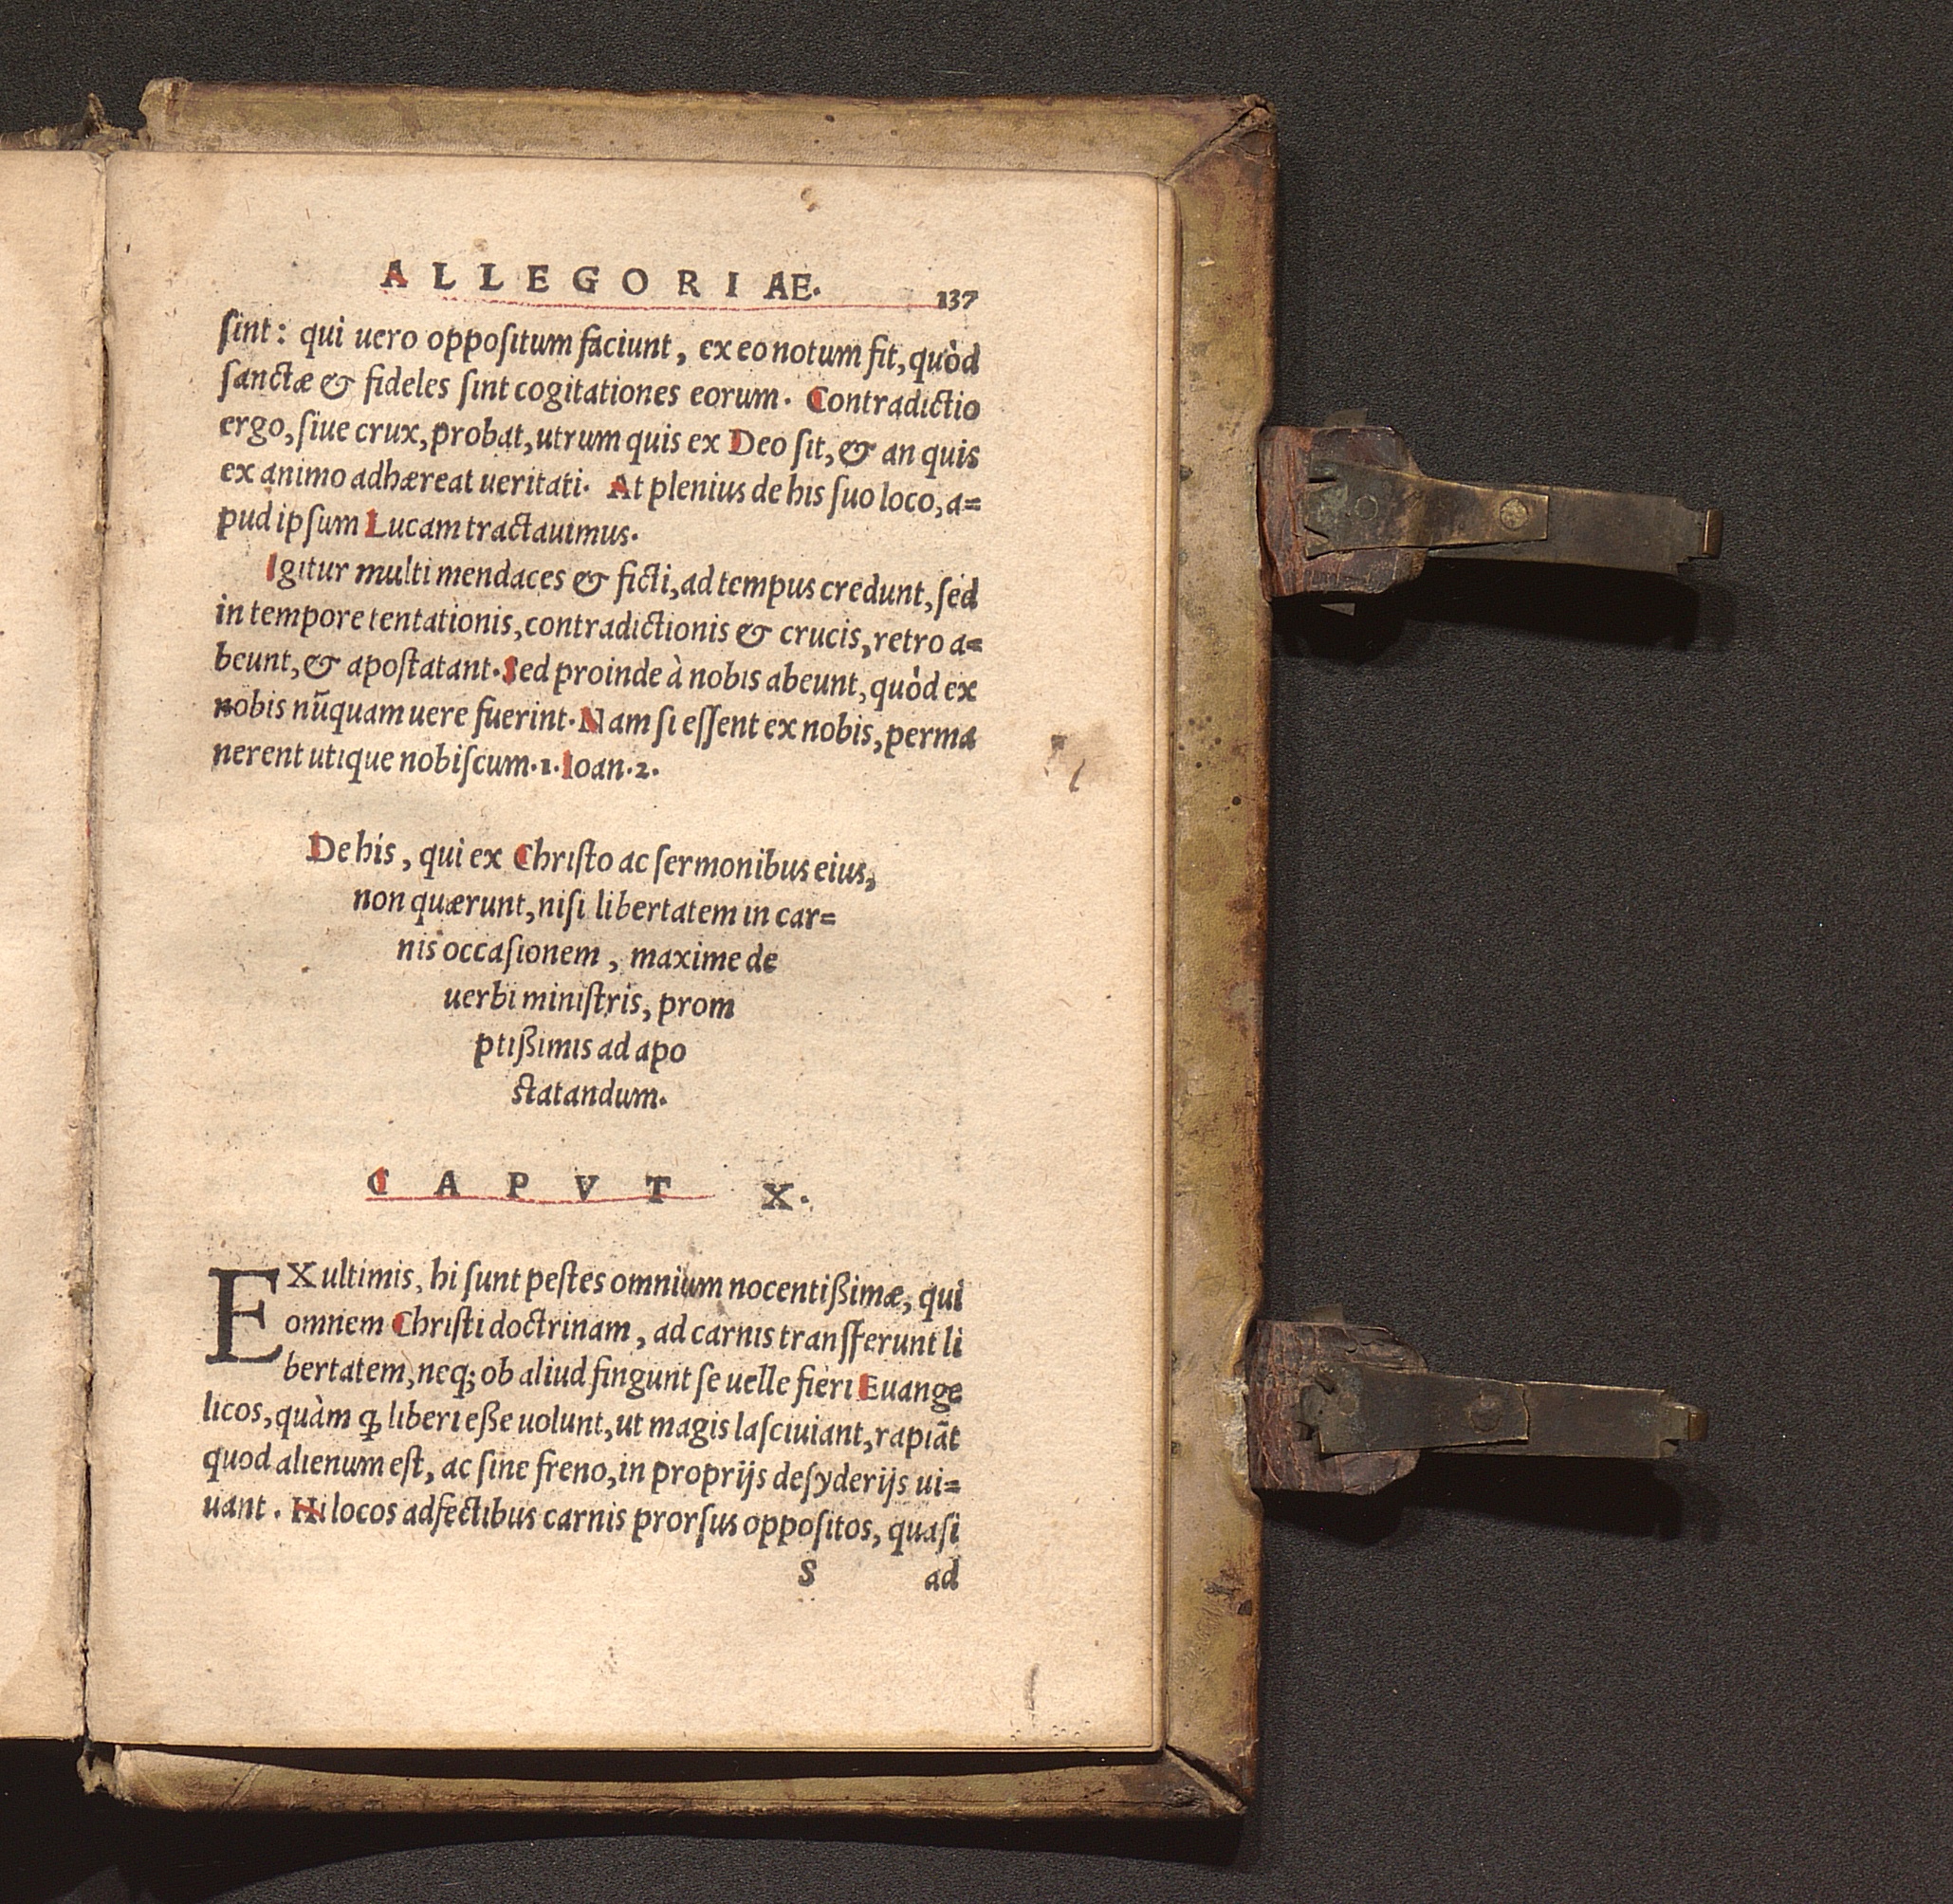 ALLEGORIAE. 137
ſint: qui uero oppoſitum faciunt, ex eo notum fit, quòd
ſanctæ & fideles ſint cogitationes eorum. Contradictio
ergo, ſiue crux, probat, utrum quis ex Deo ſit, & an quis
ex animo adhæreat ueritati. At plenius de his ſuo loco, a=
pud ipſum Lucam tractauimus.
Igitur multi mendaces & ficti, ad tempus credunt, ſed
in tempore tentationis, contradictionis & crucis, retro a=
beunt, & apoſtatant. Sed proinde à nobis abeunt, quòd ex
nobis nũquam uere fuerint. Nam ſi eſſent ex nobis, perma
nerent utique nobiſcum. 1. Ioan. 2.
De his, qui ex Chriſto ac ſermonibus eius,
non quærunt, niſi libertatem in car=
nis occaſionem, maxime de
uerbi miniſtris, prom
ptißimis ad apo
ſtatandum.
CAPVT X.
EX ultimis, hi ſunt peſtes omnium nocentißimæ, qui
omnem Chriſti doctrinam, ad carnis tranſferunt li
bertatem, neq; ob aliud fingunt ſe uelle fieri Euange
licos, quàm ꝙ liberi eße uolunt, ut magis laſciuiant, rapiãt
quod alienum eſt, ac ſine freno, in proprijs deſyderijs ui=
uant. Hi locos adfectibus carnis prorſus oppoſitos, quaſi
S ad